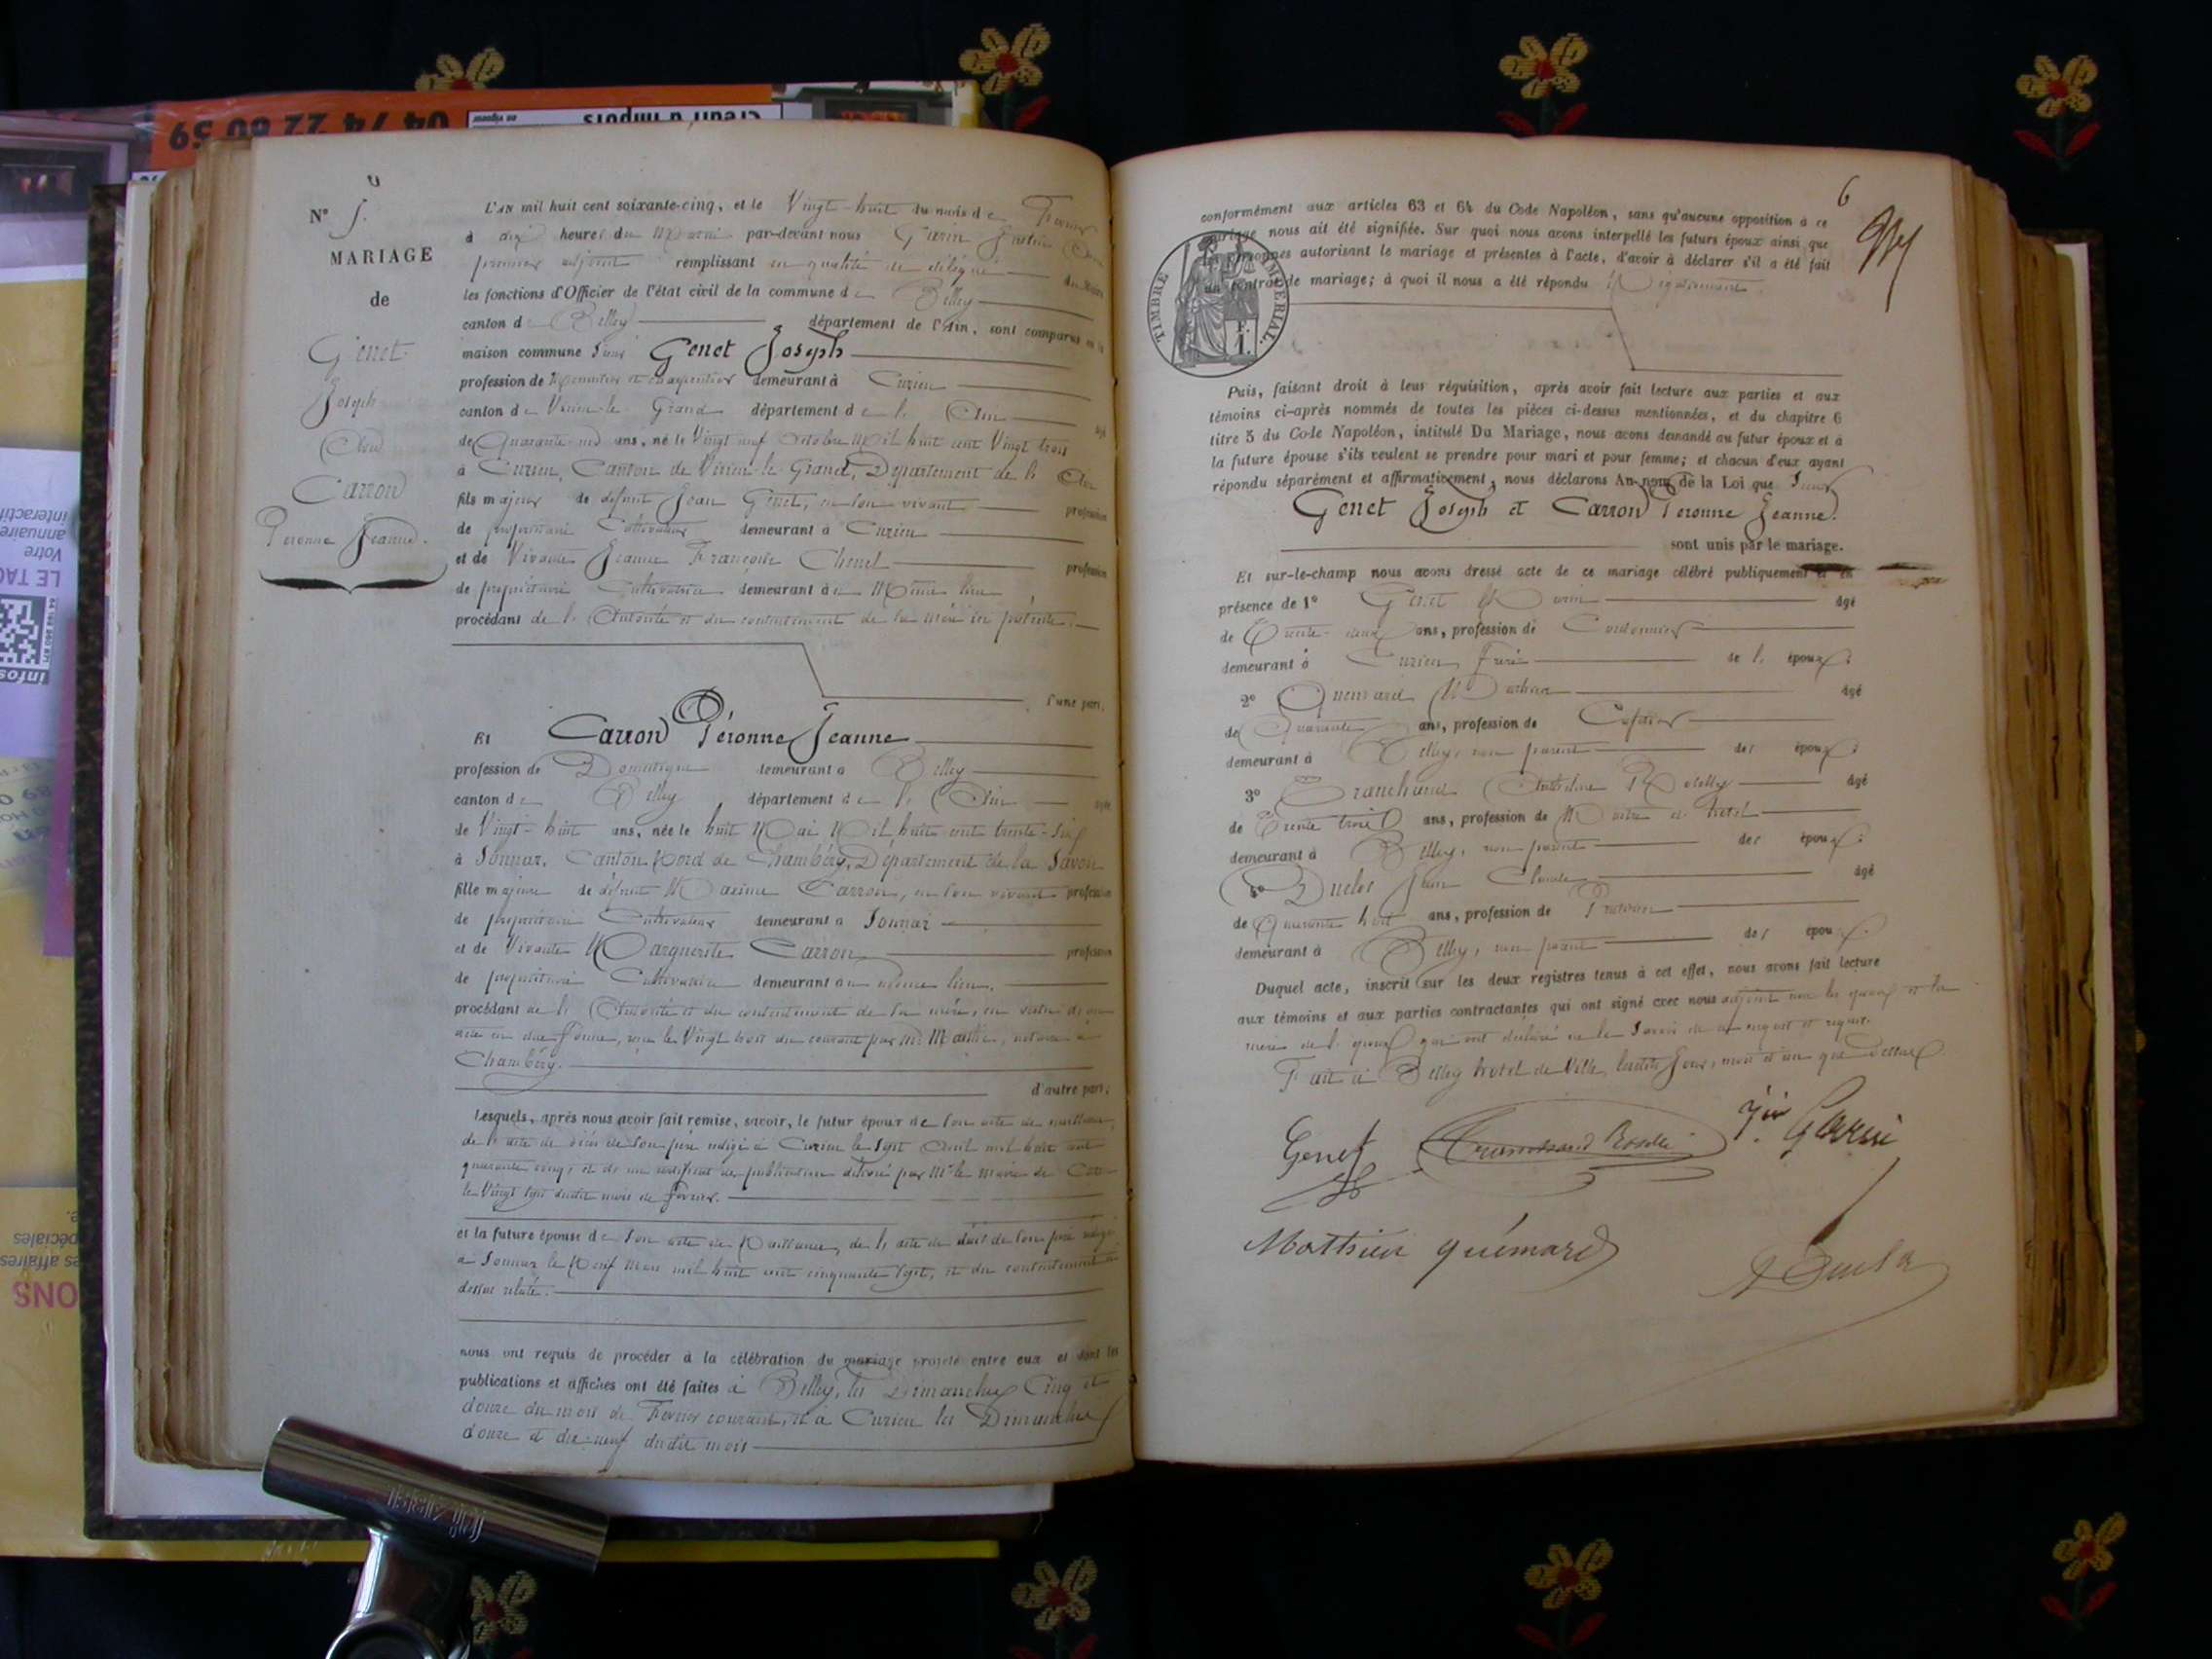 04 74 22 60 59
Crédit d'impôts
en vigueur
interactif
annuaire
Votre
LE TAC
infos
péciales
es affaires
ONS
N° 5.
MARIAGE
de
Genet
Joseph
Et
Carron
Péronne Jeanne.
L'AN mil huit cent soixante-cinq, et le Vingt-huit du mois de Février
à dix heures du Matin par-devant nous Guérin
premier adjoint remplissant en qualité de délégué du Maire
les fonctions d'Officier de l'état civil de la commune de Belley
canton de Belley département de l'Ain, sont comparus en la
maison commune Sieur Genet Joseph
profession de Menuisier et charpentier demeurant à Cuzieu
canton de Virieu-le Grand département de l' Ain âgé
de Quarante-un ans, né le Vingt neuf Octobre Mil huit cent Vingt trois
à Cuzieu, Canton de Virieu-le Grand, Département de l' Ain
fils majeur de défunt Jean Genet, en son vivant profession
de propriétaire Cultivateur demeurant à Cuzieu
et de Vivante Jeanne Françoise Chenel profession
de propriétaire Cultivatrice demeurant au Même lieu
procédant de l' Autorité et du consentement de sa mère ici présente.
d'une part,
Et Carron Péronne Jeanne
profession de Domestique demeurant à Belley
canton de Belley département de l' Ain âgée
de Vingt-huit ans, née le huit Mai Mil huit cent trente-six
à Sonnaz, Canton Nord de Chambéry, Département de la Savoie
fille majeure de défunt Maxime Carron, en son vivant profession
de propriétaire Cultivateur demeurant à Sonnaz
et de Vivante Marguerite Carron profession
de propriétaire Cultivatrice demeurant au même lieu.
procédant de l' Autorité et du consentement de sa mère, en vertu d'un
acte en due forme, reçu le Vingt trois du courant par Me notaire à
Chambéry.
d'autre part;
Lesquels, après nous avoir fait remise, savoir, le futur époux de son acte de naissance,
de l'acte de décès de son père rédigé à Cuzieu le Sept Avril mil huit cent
quarante cinq, et de un certificat de publication délivré par Mr le maire de
le Vingt sept dudit mois de Février.
et la future épouse de son acte de Naissance, de l'acte de décès de son père rédigé
à Sonnaz le Neuf Mars mil huit cent cinquante sept, et du consentement ci
dessus relaté.
nous ont requis de procéder à la célébration du mariage projeté entre eux et dont les
publications et affiches ont été faites à Belley, les Dimanches Cinq et
douze du mois de Février courant, et à Cuzieu les Dimanches
douze et dix-neuf dudit mois
6
TIMBRE IMPÉRIAL
1 F.
conformément aux articles 63 et 64 du Code Napoléon, sans qu'aucune opposition à ce
mariage nous ait été signifiée. Sur quoi nous avons interpellé les futurs époux ainsi que
les personnes autorisant le mariage et présentes à l'acte, d'avoir à déclarer s'il a été fait
un contrat de mariage; à quoi il nous a été répondu Négativement.
Puis, faisant droit à leur réquisition, après avoir fait lecture aux parties et aux
témoins ci-après nommés de toutes les pièces ci-dessus mentionnées, et du chapitre 6
titre 5 du Code Napoléon, intitulé Du Mariage, nous avons demandé au futur époux et à
la future épouse s'ils veulent se prendre pour mari et pour femme; et chacun d'eux ayant
répondu séparément et affirmativement, nous déclarons Au nom de la Loi que Sieur
Genet Joseph et Carron Péronne Jeanne.
sont unis par le mariage.
Et sur-le-champ nous avons dressé acte de ce mariage célébré publiquement et en
présence de 1° Genet âgé
de Trente-deux ans, profession de Cordonnier
demeurant à Cuzieu, frère de l' époux;
2° Quemard Mathieu âgé
de Quarante ans, profession de Cafetier
demeurant à Belley, non parent des époux;
3° Tranchand Anthelme Roselly âgé
de Trente trois ans, profession de Maître d'hotel
demeurant à Belley, non parent des époux;
4° Duclos Jean Claude âgé
de Quarante huit ans, profession de
demeurant à Belley, non parent des époux.
Duquel acte, inscrit sur les deux registres tenus à cet effet, nous avons fait lecture
aux témoins et aux parties contractantes qui ont signé avec nous adjoint non les époux et la
mère de l'époux qui ont déclaré ne le Savoir de ce enquis et requis.
Fait à Belley hotel de Ville, lesdits Jour, mois et an que dessus
Genet Tranchand Roselli Guérin
Mathieu quémard Duclos